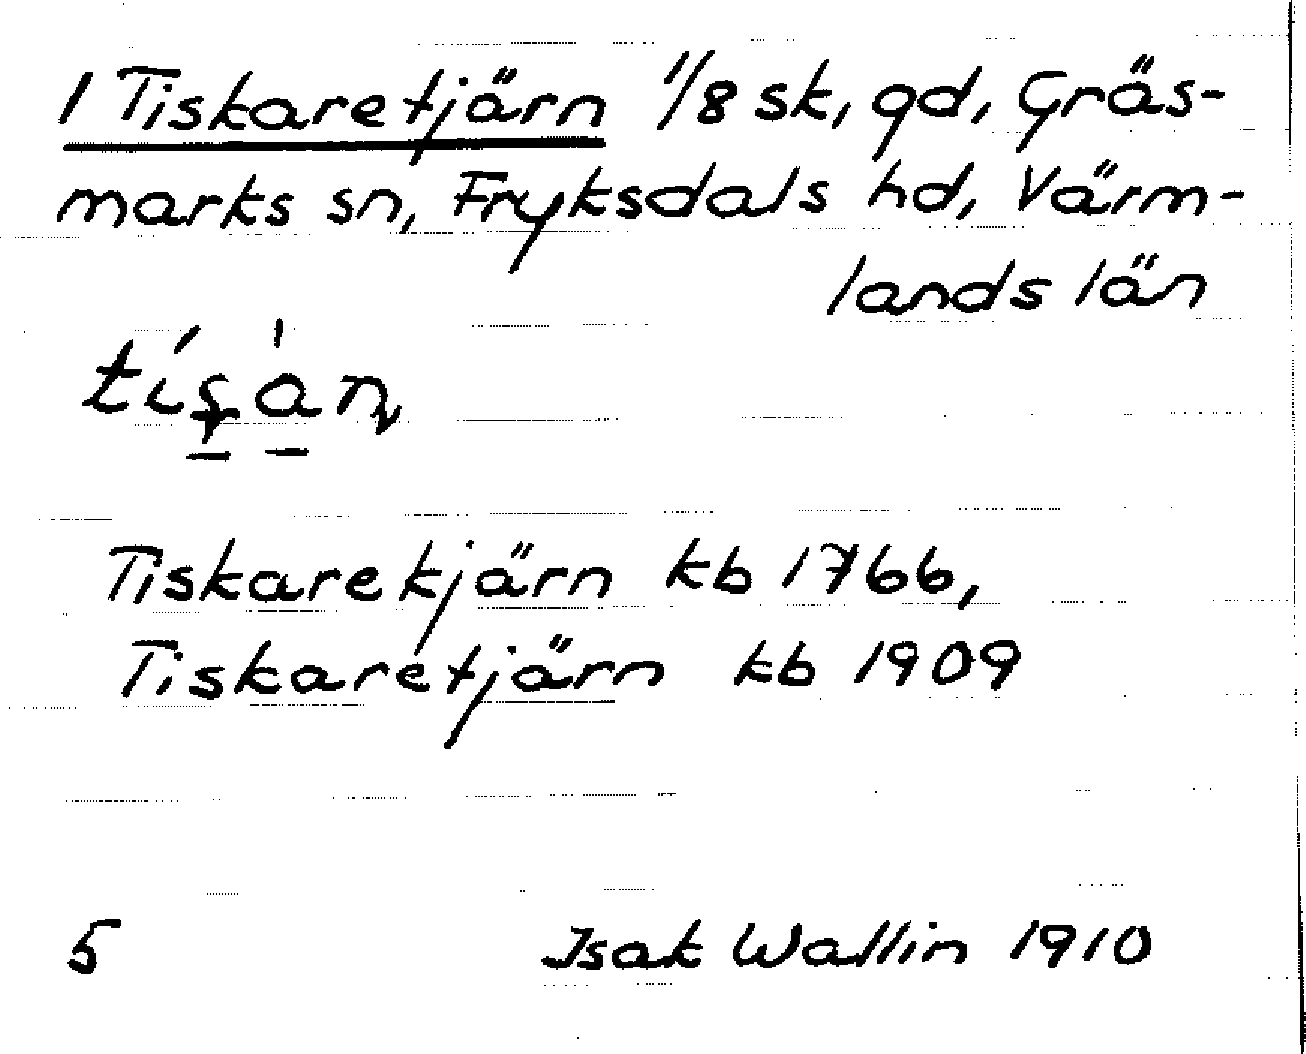 1 Tiskaretjärn 1/8 sk, gd, Gräs-
marks sn, Fryksdals hd, Värm-
lands län
Tiskarekjärn kb 1766,
Tiskaretjärn kb 1909
5 Isak Wallin 1910